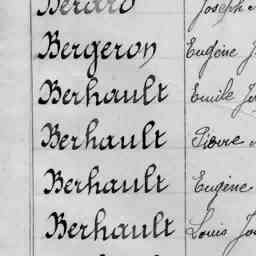 Bérard Joseph
Bergeron Eugène
Berhault Emile
Berhault Pierre
Berhault Eugène
Berhault Louis